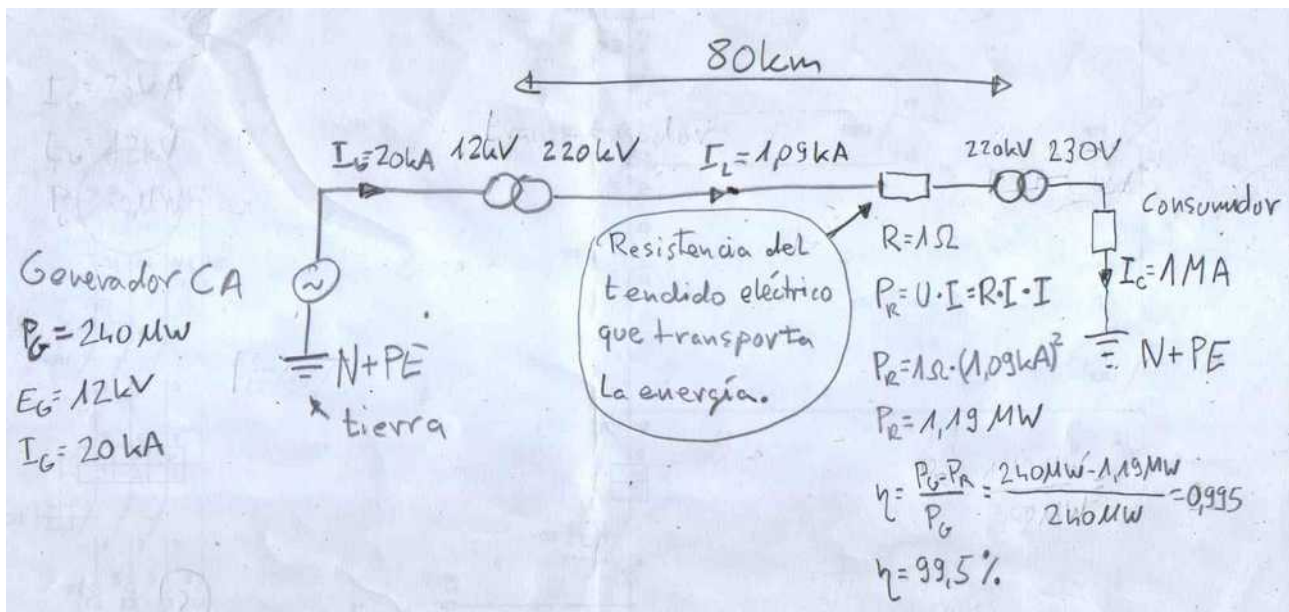 80km
I_G=20kA 12kV 220kV I_L=1,09kA 220kV 230V
Consumidor
Generador CA
P_G=240MW
E_G=12kV
I_G=20kA
N+PE
tierra
Resistencia del
tendido eléctrico
que transporta
La energía.
R=1Ω
P_R=U·I=R·I·I
P_R=1Ω·(1,09kA)²
P_R=1,19MW
η=P_G-P_R/P_G=240MW-1,19MW/240MW=0,995
η=99,5%
I_C=1MA
N+PE